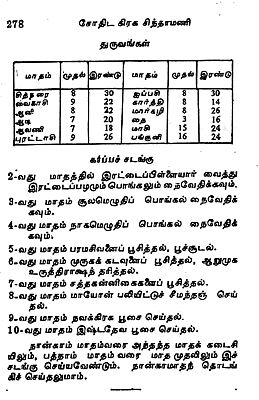 278 சோதிட கிரக சிந்தாமணி
துருவங்கள்
மாதம் முதல் இரண்டு மாதம் முதல் இரண்டு
சித்திரை 8 30 ஐப்பசி 8 30
வைகாசி 9 22 கார்த்தி 8 14
ஆனி 8 22 மார்கழி 8 26
ஆடி 7 20 தை 3 16
ஆவணி 7 18 மாசி 15 24
புரட்டாசி 9 26 பங்குனி 16 24
கர்ப்பச் சடங்கு
2-வது மாதத்தில் இரட்டைப்பிள்ளையார் வைத்து
இரட்டைப்பழமும் பொங்கலும் நைவேதிக்கவும்.
3-வது மாதம் சூலமெழுதிப் பொங்கல் நைவேதிக்
கவும்.
4-வது மாதம் நாகமெழுதிப் பொங்கல் நைவேதிக்
கவும்.
5-வது மாதம் பரமசிவனைப் பூசித்தல், பூச்சூடல்.
6-வது மாதம் முருகக் கடவுளைப் பூசித்தல், ஆறுமுக
உருத்திராக்ஷந் தரித்தல்.
7-வது மாதம் சத்தகன்னிகைகளைப் பூசித்தல்.
8-வது மாதம் மாயோன் பலியிட்டுச் சீமந்தஞ் செய்
தல்.
9-வது மாதம் நவக்கிரக பூசை செய்தல்.
10-வது மாதம் இஷ்டதேவ பூசை செய்தல்.
நான்காம் மாதம்வரை அந்தந்த மாதக் கடைசி
யிலும், பத்தாம் மாதம் வரை மாத முதலிலும் இச்
சடங்கு செய்யவேண்டும். நான்காமாதந் தொடங்
கிச் செய்தலுமாம்.